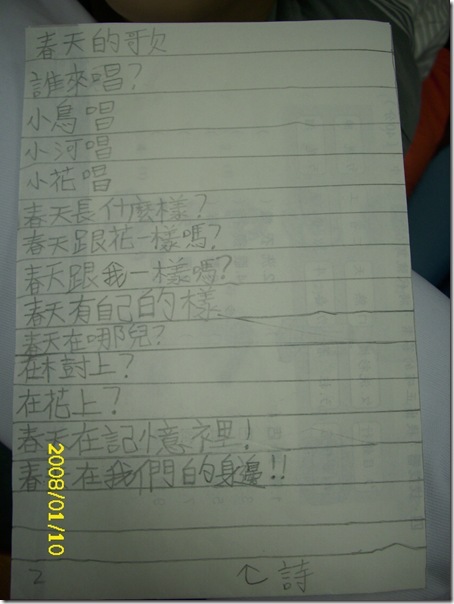 春天的歌
誰來唱?
小鳥唱
小河唱
小花唱
春天長什麼樣?
春天跟花一樣嗎?
春天跟我一樣嗎?
春天有自己的樣
春天在哪兒?
在樹上?
在花上?
春天在記憶裡!
春天在我們的身邊!!
2
詩
2008/01/10